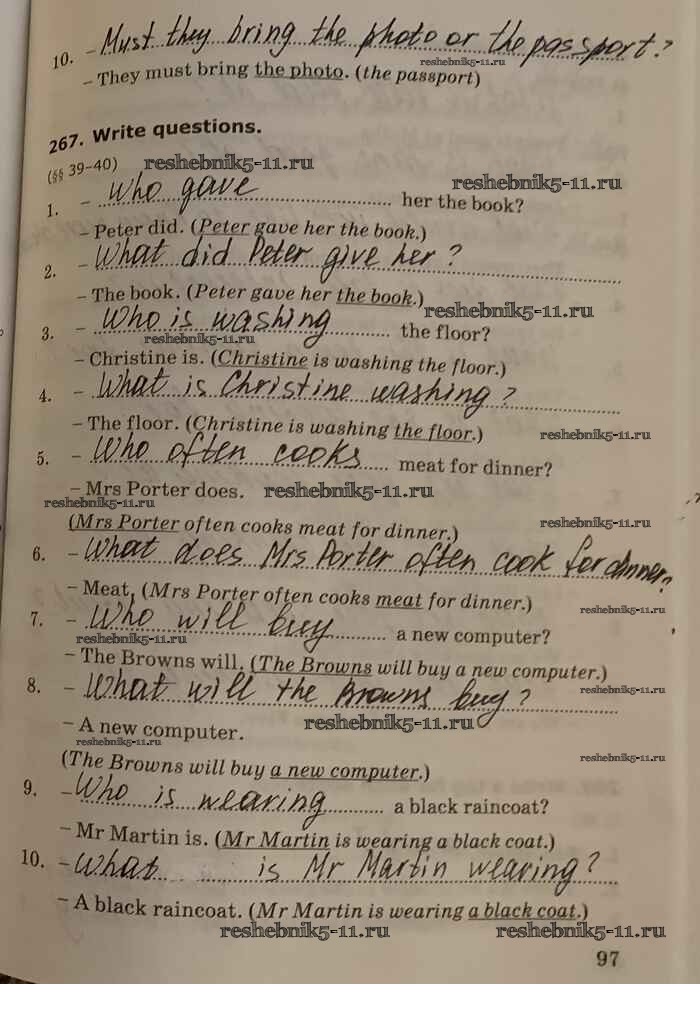 10. – Must they bring the photo or the passport?
reshebnik5-11.ru
– They must bring the photo. (the passport)
267. Write questions.
(§§ 39–40) reshebnik5-11.ru reshebnik5-11.ru
1. – Who gave her the book?
– Peter did. (Peter gave her the book.)
2. – What did Peter give her?
– The book. (Peter gave her the book.)
reshebnik5-11.ru
3. – Who is washing the floor?
reshebnik5-11.ru
– Christine is. (Christine is washing the floor.)
4. – What is Christine washing?
– The floor. (Christine is washing the floor.) reshebnik5-11.ru
5. – Who often cooks meat for dinner?
– Mrs Porter does. reshebnik5-11.ru
reshebnik5-11.ru
(Mrs Porter often cooks meat for dinner.) reshebnik5-11.ru
6. – What does Mrs Porter often cook for dinner?
– Meat. (Mrs Porter often cooks meat for dinner.) reshebnik5-11.ru
7. – Who will buy a new computer?
reshebnik5-11.ru
– The Browns will. (The Browns will buy a new computer.)
8. – What will the Browns buy? reshebnik5-11.ru
– A new computer. reshebnik5-11.ru
reshebnik5-11.ru reshebnik5-11.ru
(The Browns will buy a new computer.)
9. – Who is wearing a black raincoat?
– Mr Martin is. (Mr Martin is wearing a black coat.)
10. – What is Mr Martin wearing?
– A black raincoat. (Mr Martin is wearing a black coat.)
reshebnik5-11.ru reshebnik5-11.ru
97